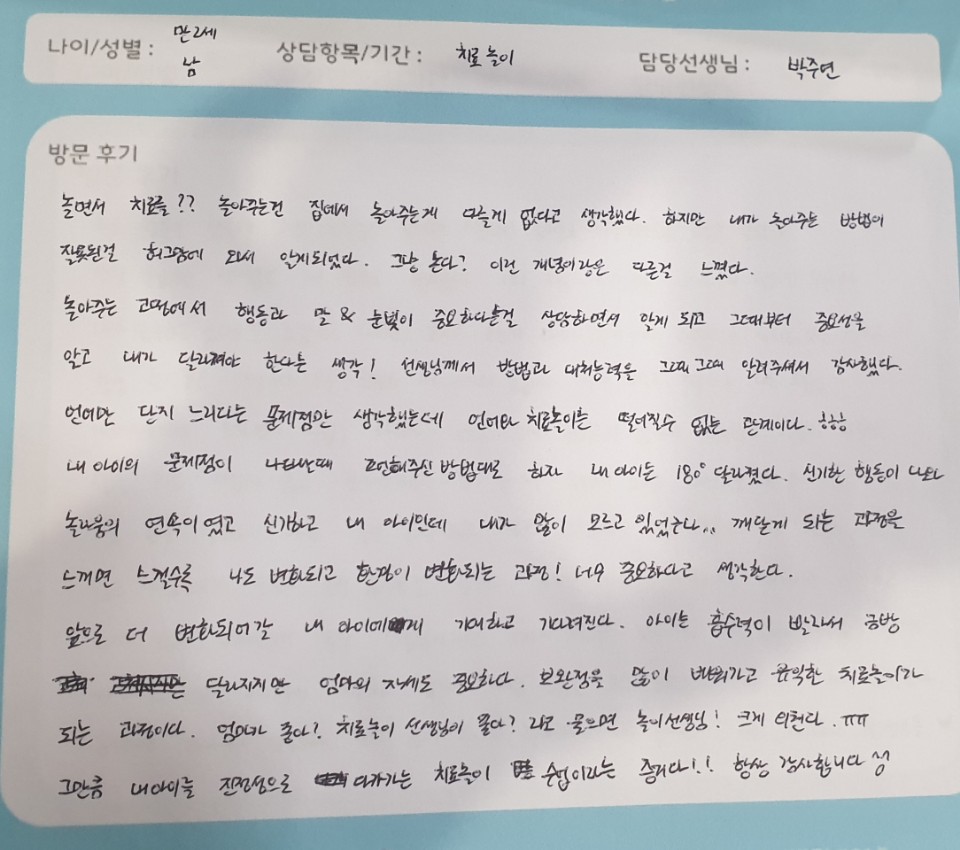 나이/성별 : 만2세 남 상담항목/기간 : 치료놀이 담당선생님 : 박주연
방문 후기
놀면서 치료를?? 놀아주는건 집에서 놀아주는게 다를게 없다고 생각했다. 하지만 내가 놀아주는 방법이
잘못된걸 와서 알게되었다. 그냥 논다? 이런 개념이랑은 다른걸 느꼈다.
놀아주는 과정에서 행동과 말 & 눈빛이 중요하다는걸 상담하면서 알게 되고 그때부터 중요성을
알고 내가 달라져야 한다는 생각! 선생님께서 방법과 대처능력을 그때그때 알려주셔서 감사했다.
언어만 단지 느리다는 문제점만 생각했는데 언어와 치료놀이는 떨어질수 없는 관계이다. ㅎㅎㅎ
내 아이의 문제점이 나타날때 조언해주신 방법대로 하자 내 아이는 180° 달라졌다. 신기한 행동이 나와
놀라움의 연속이였고 신기하고 내 아이인데 내가 많이 모르고 있었구나,,, 깨닫게 되는 과정을
느끼면 느낄수록 나도 변화되고 환경이 변화되는 과정! 너무 중요하다고 생각한다.
앞으로 더 변화되어갈 내 아이에게 기대하고 기다려진다. 아이는 흡수력이 빨라서 금방
달라지지만 엄마의 자세도 중요하다. 보완점을 많이 바꿔가고 유익한 치료놀이가
되는 과정이다. 엄마가 좋아? 치료놀이 선생님이 좋아? 라고 물으면 놀이선생님! 크게 외친다. ㅠㅠ
그만큼 내아이를 진정성으로 다가가는 치료놀이 수업이라는 증거다!! 항상 감사합니다